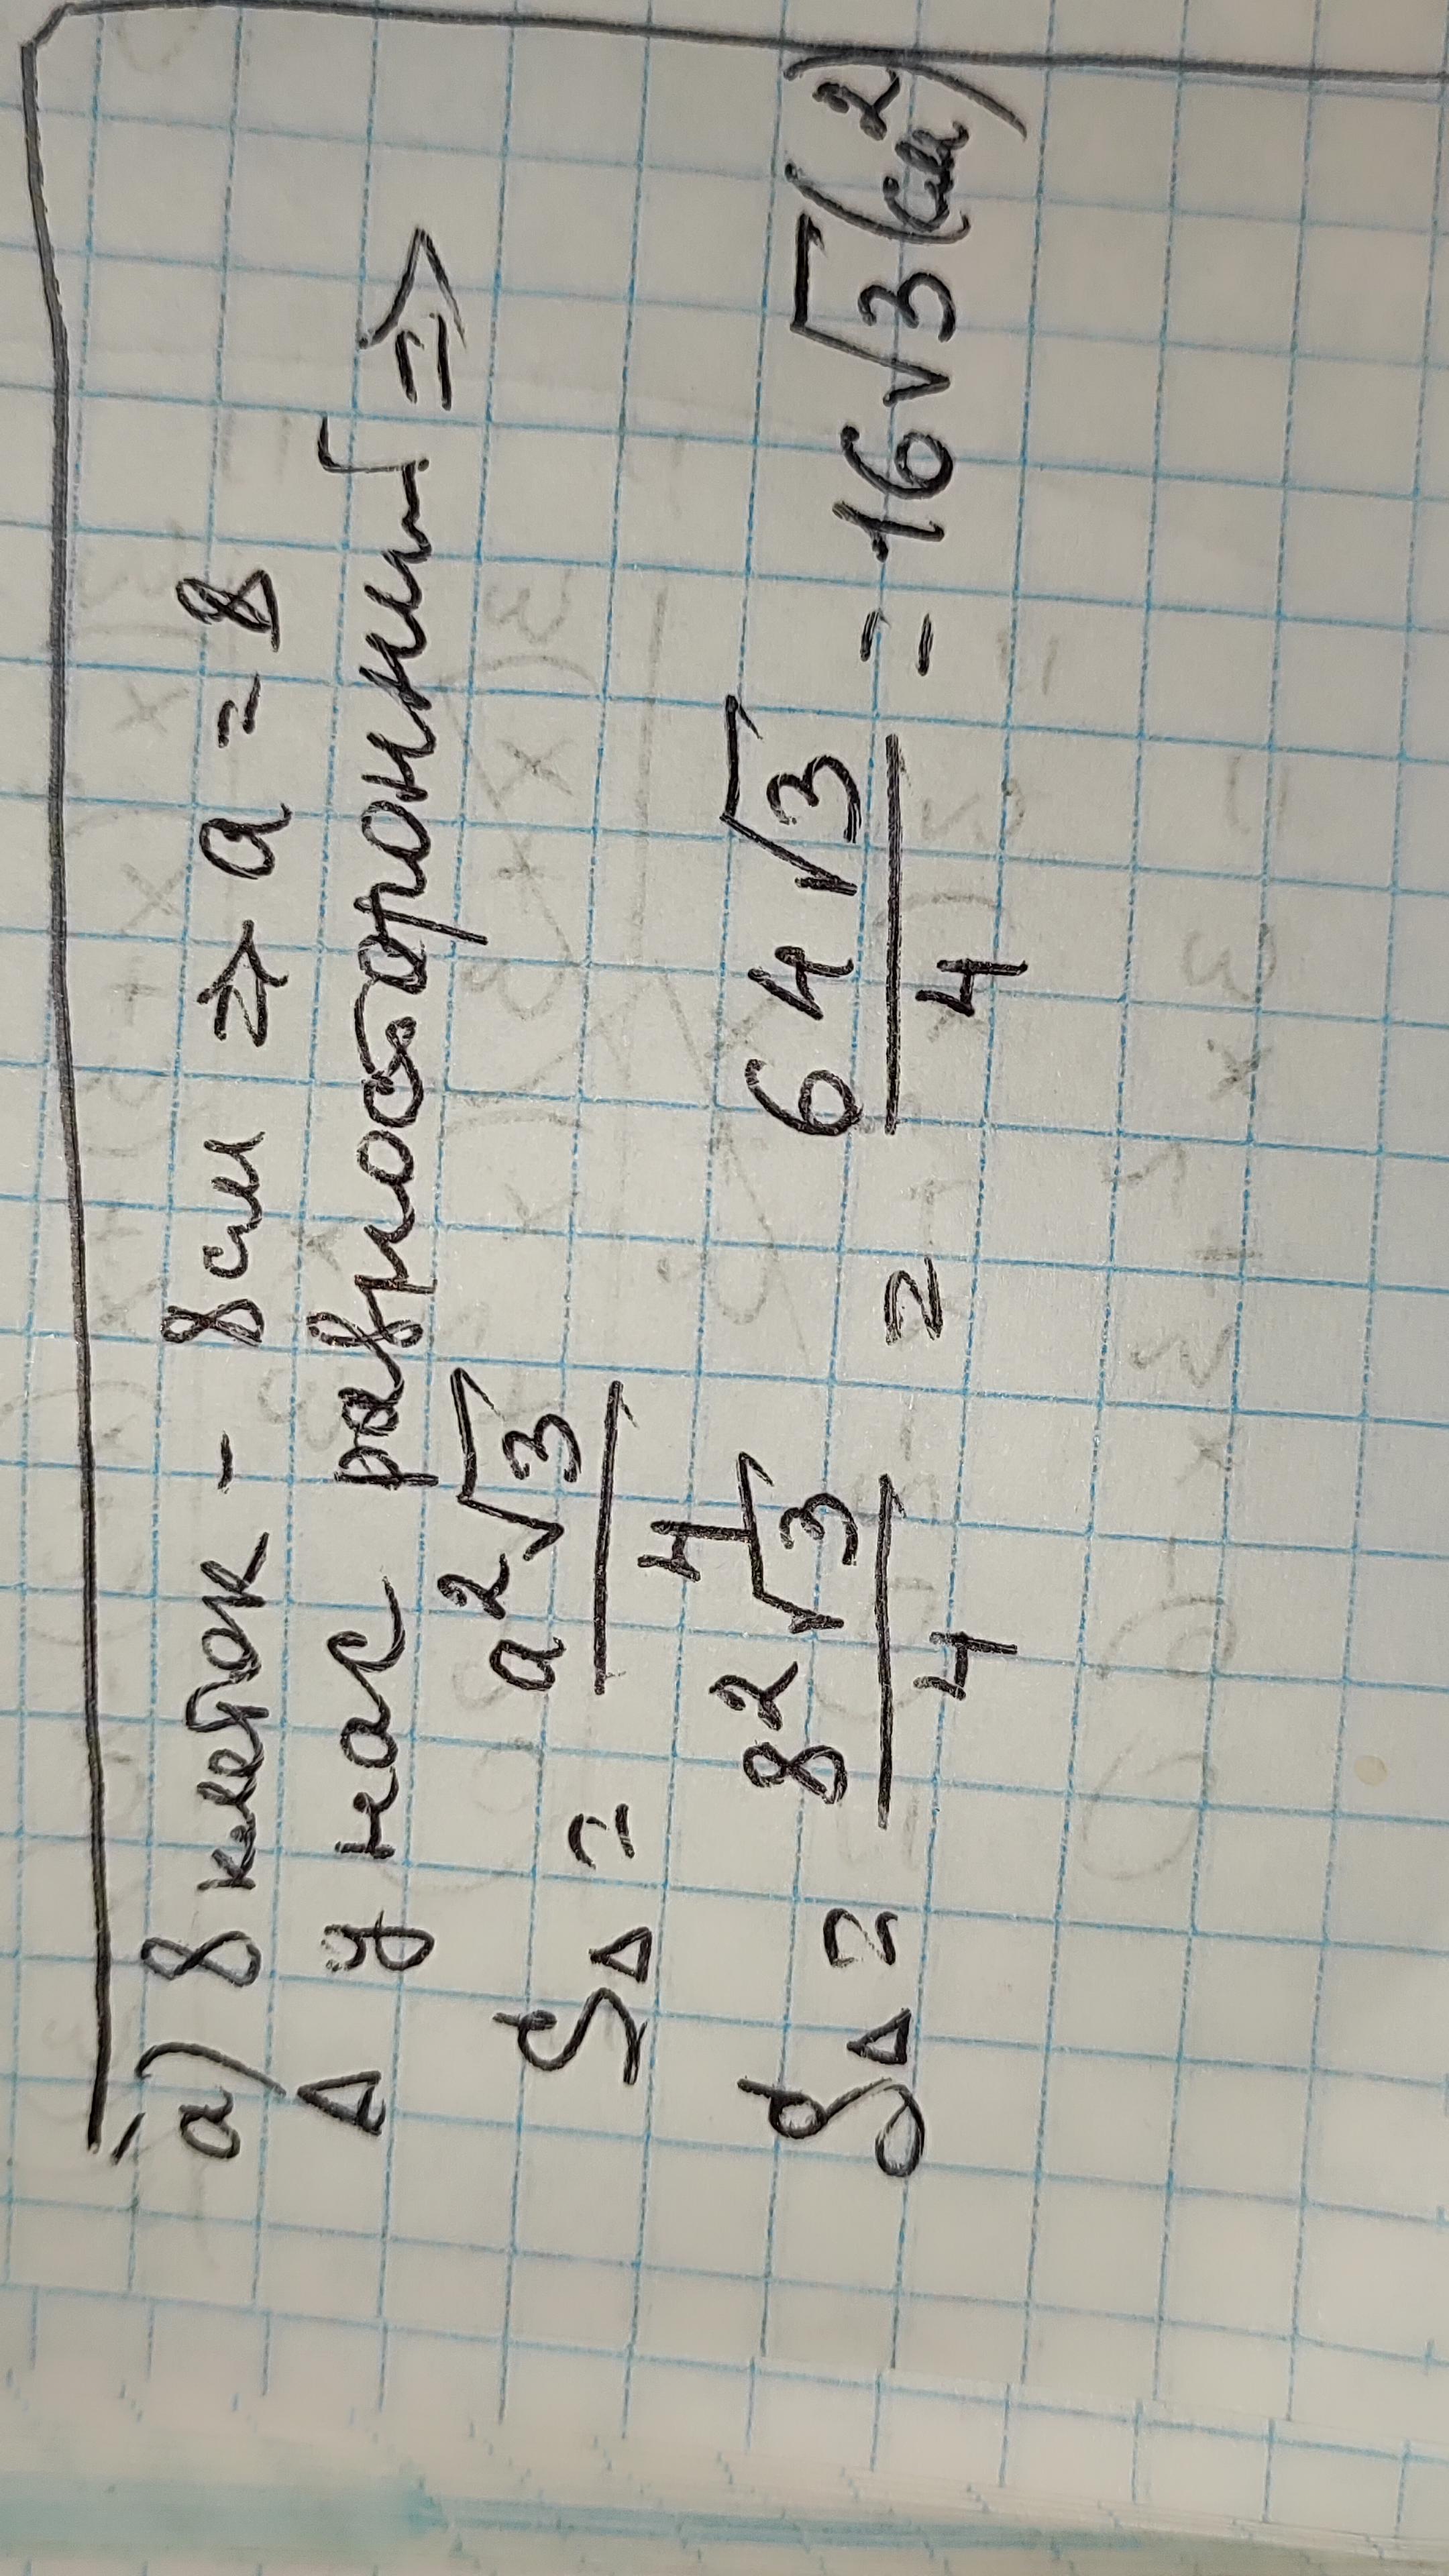 а) 8 клеток - 8 см ⇒ a = 8
Δ у нас равносторонний ⇒
SΔ = a²√3 / 4
SΔ = 8²√3 / 4 = 64√3 / 4 = 16√3 (см²)